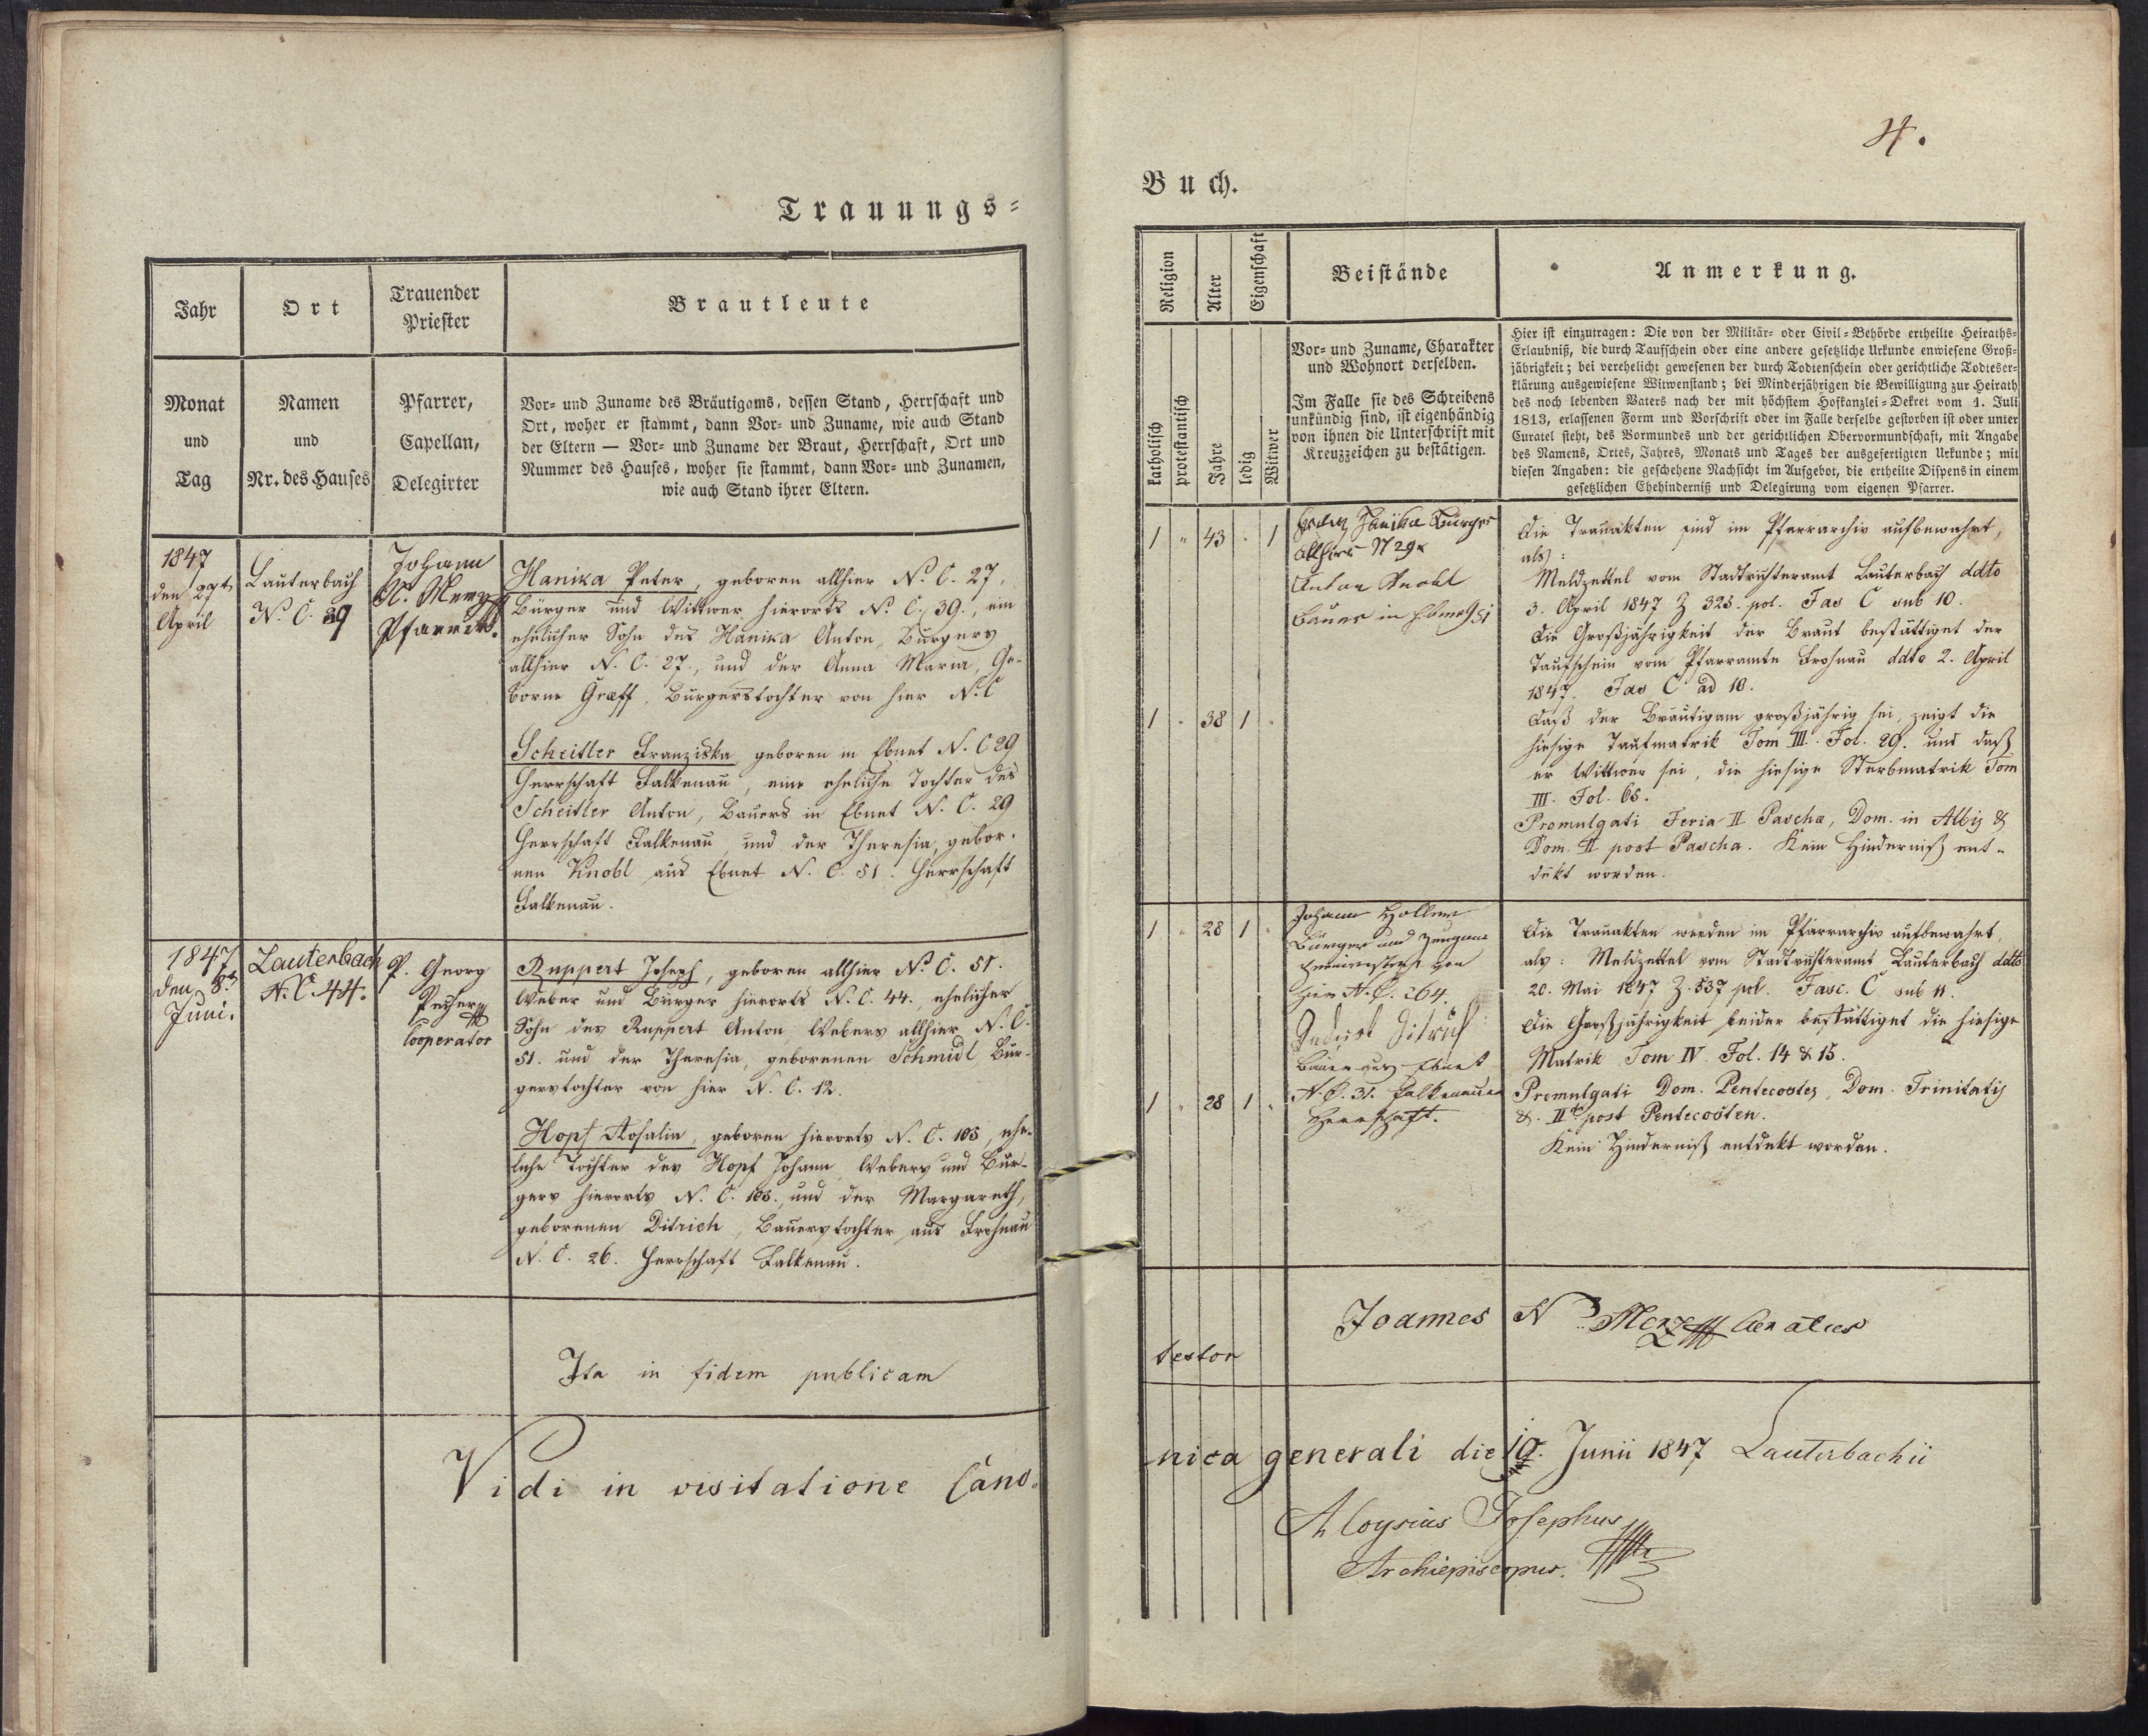 4.
Trauungs-
Buch.
Jahr
Ort
Trauender
Priester
Brautleute
Monat
und
Tag
Namen
und
Nr. des Hauses
Pfarrer,
Capellan,
Delegirter
Vor- und Zuname des Bräutigams, dessen Stand, Herrschaft und
Ort, woher er stammt, dann Vor- und Zuname, wie auch Stand
der Eltern — Vor- und Zuname der Braut, Herrschaft, Ort und
Nummer des Hauses, woher sie stammt, dann Vor- und Zunamen,
wie auch Stand ihrer Eltern.
Religion
Alter
Eigenschaft
Beistände
Anmerkung.
katholisch
protestantisch
Jahre
ledig
Witwer
Vor- und Zuname, Charakter
und Wohnort derselben.
Im Falle sie des Schreibens
unkündig sind, ist eigenhändig
von ihnen die Unterschrift mit
Kreuzzeichen zu bestätigen.
Hier ist einzutragen: Die von der Militär- oder Civil-Behörde ertheilte Heiraths-
Erlaubniß, die durch Taufschein oder eine andere gesetzliche Urkunde erwiesene Groß-
jährigkeit; bei verehelicht gewesenen der durch Todtenschein oder gerichtliche Todteser-
klärung ausgewiesene Witwenstand; bei Minderjährigen die Bewilligung zur Heirath
des noch lebenden Vaters nach der mit höchstem Hofkanzlei-Dekret vom 1. Juli
1813, erlassenen Form und Vorschrift oder im Falle derselbe gestorben ist oder unter
Curatel steht, des Vormundes und der gerichtlichen Obervormundschaft, mit Angabe
des Namens, Ortes, Jahres, Monats und Tages der ausgefertigten Urkunde; mit
diesen Angaben: die geschehene Nachsicht im Aufgebot, die ertheilte Dispens in einem
gesetzlichen Ehehinderniß und Delegirung vom eigenen Pfarrer.
1847
den 27t
April
Lauterbach
N. C. 39
Johann
N. Merz
Pfarrer.
Hanika Peter, geboren allhier N. C. 27,
Bürger und Wittwer hierorts N. C. 39., ein
ehelicher Sohn des Hanika Anton, Burgers
allhier N. C. 27., und der Anna Maria, Ge-
borne Græff, Burgerstochter von hier N. C
Scheitler Franziska geboren in Ebnet N. C 29
Herrschaft Falkenau, eine eheliche Tochter des
Scheitler Anton, Bauers in Ebnet N. C. 29
Herrschaft Falkenau, und der Theresia, gebor-
nen Knobl aus Ebnet N. C. 51. Herrschaft
Falkenau.
1 " 43 " 1
1 " 38 1 "
Hanika Bürger
allhier N 29
Anton Knobl
Bauer in Ebnet 51
Die Trauakten sind im Pfarrarchiv aufbewahrt,
als:
Meldzettel vom Stadtrichteramt Lauterbach ddto
3. April 1847 Z 325. pol. Fas C sub 10.
Die Großjährigkeit der Braut bestättiget der
Taufschein vom Pfarramte Frohnau ddto 2. April
1847. Fas C ad 10.
Daß der Bräutigam großjährig sei, zeigt die
hiesige Taufmatrik Tom III. Fol. 29. und daß
er Wittwer sei, die hiesige Sterbmatrik Tom
III. Fol. 65.
Promulgati Feria II Pascha, Dom. in Albis &
Dom. II post Pascha. Kein Hinderniß ent-
dekt worden.
1847
den 8t
Juni.
Lauterbach
N. C. 44.
P. Georg
Cooperator
Ruppert Joseph, geboren allhier N. C. 51.
Weber und Bürger hierorts N. C. 44. ehelicher
Sohn des Ruppert Anton, Webers allhier N. C.
51. und der Theresia, geborenen Schmidl, Bur-
gerstochter von hier N. C. 12.
Hopf Rosalia, geboren hierorts N. C. 105, ehe-
liche Tochter des Hopf Johann, Webers und Bür-
gers hierorts N. C. 105., und der Margareth,
geborenen Ditrich, Bauerstochter aus Frohnau
N. C. 26. Herrschaft Falkenau.
1 " 28 1 "
1 " 28 1 "
Johann
Bürger und
hier N. C. 264.
Ditrich
Bauer aus Ebnet
N. C. 31. Falkenauer
Herrschaft.
Die Trauakten werden im Pfarrarchiv aufbewahrt,
als: Meldzettel vom Stadtrichteramt Lauterbach ddto
20. Mai 1847 Z. 537 pol. Fasc. C sub 11.
Die Großjährigkeit beider bestättiget die hiesige
Matrik Tom IV. Fol. 14 & 15.
Promulgati Dom. Pentecostes, Dom. Trinitatis
&. II post Pentecosten.
Kein Hinderniß entdekt worden.
Ita in fidem publicam
testor
Joannes N Merz Curatus
Vidi in visitatione Cano-
nica generali die 19. Junii 1847 Lauterbachii
Aloysius Josephus
Archiepiscopus.